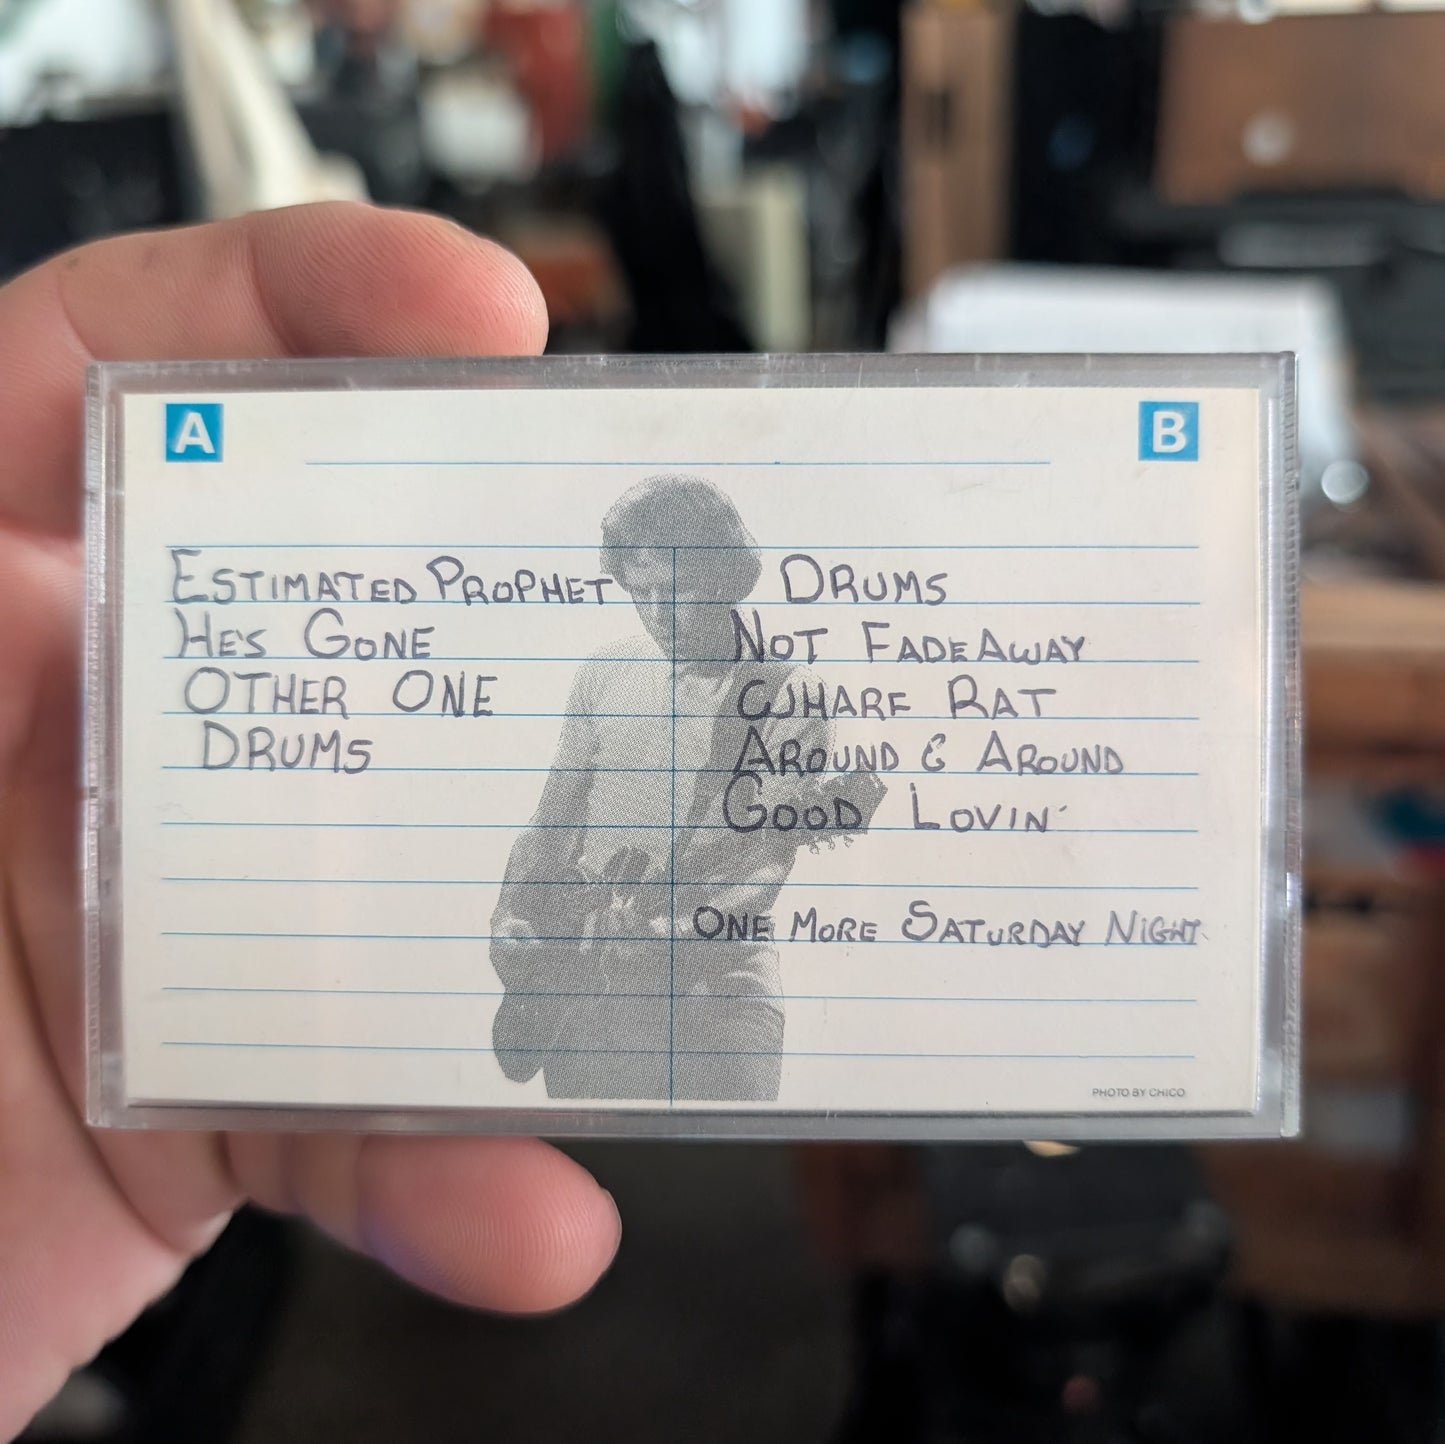 A
B
ESTIMATED PROPHET
HE'S GONE
OTHER ONE
DRUMS
DRUMS
NOT FADE AWAY
WHARF RAT
AROUND & AROUND
GOOD LOVIN'
ONE MORE SATURDAY NIGHT
PHOTO BY CHICO